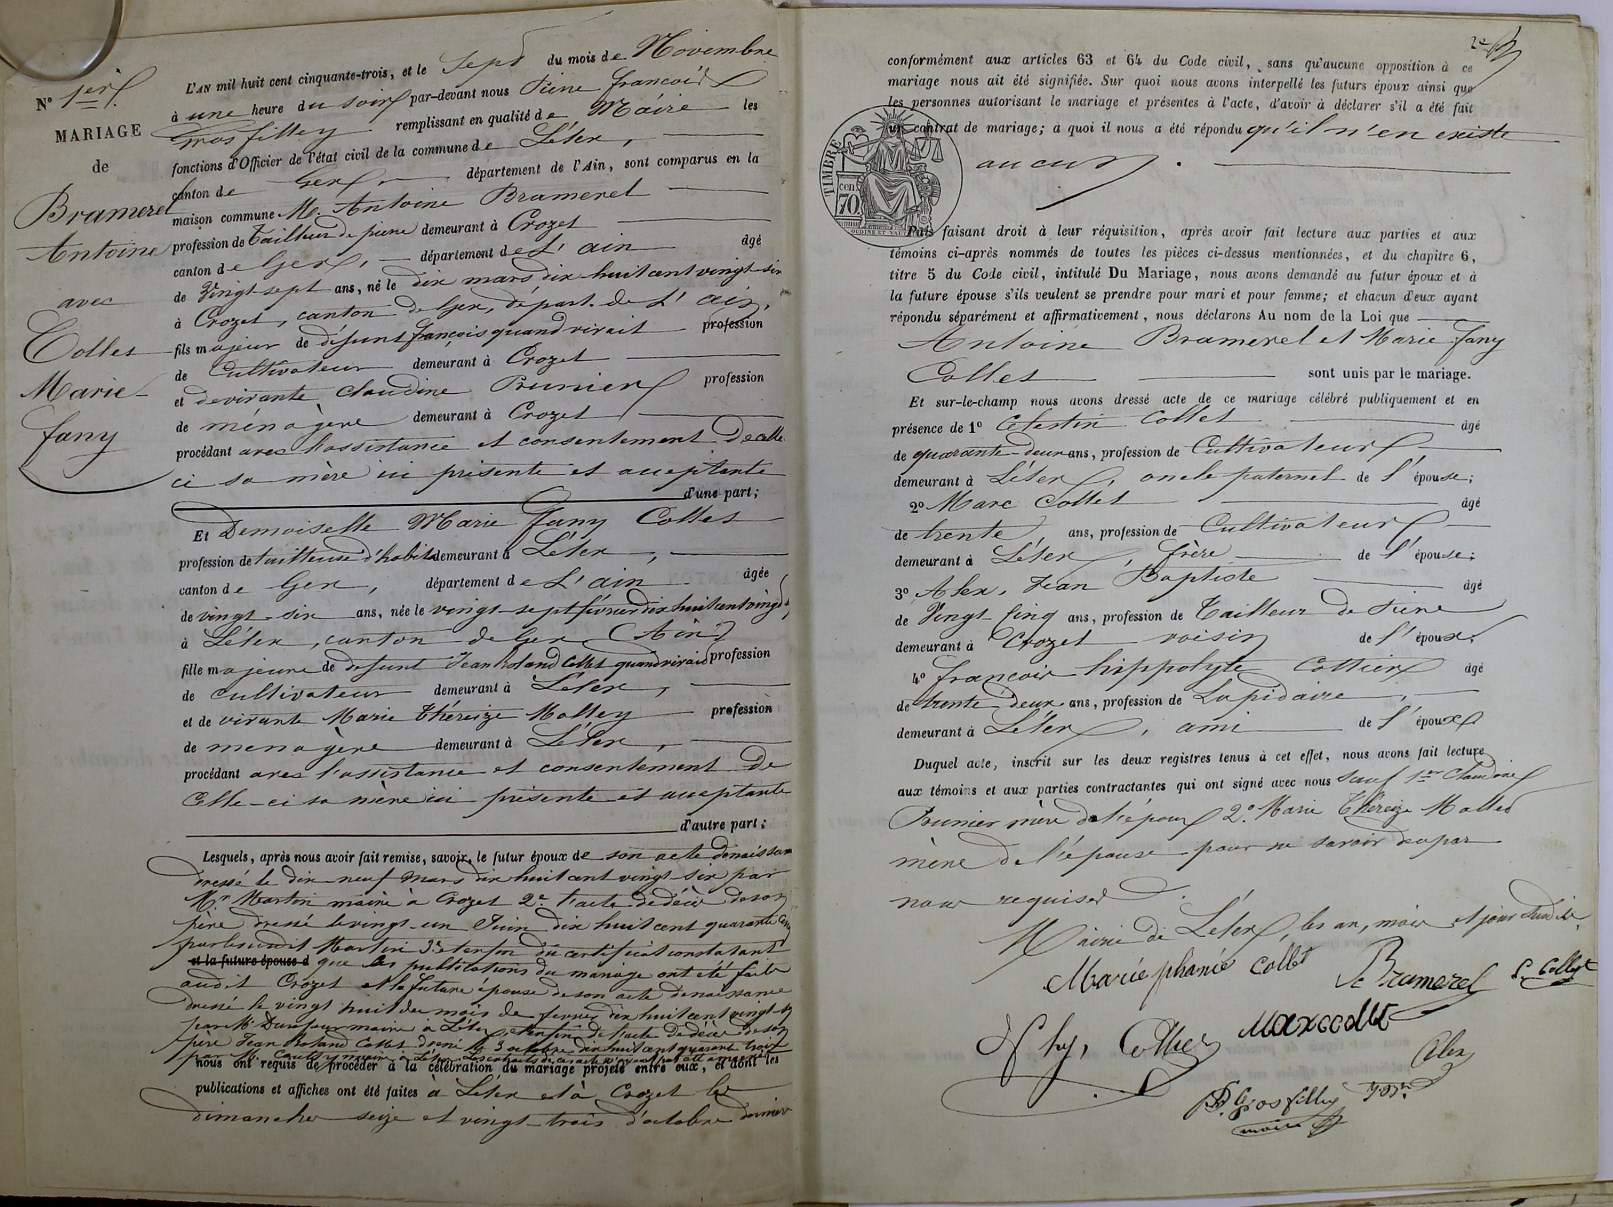 Nº 1er
MARIAGE
de
Brameret
Antoine
avec
Collet
Marie
fany
L'AN mil huit cent cinquante-trois, et le Sept du mois de Novembre
à une heure du soir par-devant nous Pierre francois
Grosfilley remplissant en qualité de Maire les
fonctions d'Officier de l'état civil de la commune de Lélex,
canton de Gex, département de l'Ain, sont comparus en la
maison commune Mr. Antoine Brameret
profession de Tailleur de pierre demeurant à Crozet
canton de Gex, département de L'ain âgé
de Vingt sept ans, né le dix mars dix huit cent vingt-six
à Crozet, canton de Gex, départ. de L'ain,
fils majeur de défunt francois quand vivait profession
de Cultivateur demeurant à Crozet
et de vivante Claudine Prunier profession
de ménagère demeurant à Crozet
procédant avec l'assistance et consentement de celle
ci sa mère ici présente et acceptante
d'une part;
Et Demoiselle Marie fany Collet
profession de tailleuse d'habits demeurant à Lélex,
canton de Gex, département de L'ain âgée
de vingt-six ans, née le vingt-sept février dix huit cent vingt
à Lélex, canton de Gex (Ain)
fille majeure de défunt Jean Roland Collet quand vivait profession
de Cultivateur demeurant à Lélex,
et de vivante Marie Théreize Molley profession
de menagère demeurant à Lélex,
procédant avec l'assistance et consentement de
Celle-ci sa mère ici présente et acceptante
d'autre part;
Lesquels, après nous avoir fait remise, savoir, le futur époux de son acte denaissance
dressé le dix neuf mars dix huit cent vingt-six par
Mr. Martin maire à Crozet 2º l'acte de décès de son
père dressé le vingt-un Juin dix huit cent quarante
par lesusdit Martin 3º et enfin du certificat constatant
et la future épouse d que les publications du mariage ont été faite
audit Crozet et la future épouse de son acte denaissance
dressé le vingt huit du mois de fevrier dix huit cent vingt-
par Mr Ducrfour maire à Lélex, et enfin de l'acte de décès de son
père Jean Roland Collet dressé le 3 octobre dix huit cent quarante trois
par Mr. maire à Lélex.
nous ont requis de procéder à la célébration du mariage projeté entre eux, et dont les
publications et affiches ont été faites à Lélex et à Crozet les
dimanches seize et vingt-trois d'octobre dernier
2e
conformément aux articles 63 et 64 du Code civil, sans qu'aucune opposition à ce
mariage nous ait été signifiée. Sur quoi nous avons interpellé les futurs époux ainsi que
les personnes autorisant le mariage et présentes à l'acte, d'avoir à déclarer s'il a été fait
un contrat de mariage; à quoi il nous a été répondu qu'il n'en existe
aucun.
TIMBRE
cen
70
Puis faisant droit à leur réquisition, après avoir fait lecture aux parties et aux
témoins ci-après nommés de toutes les pièces ci-dessus mentionnées, et du chapitre 6,
titre 5 du Code civil, intitulé Du Mariage, nous avons demandé au futur époux et à
la future épouse s'ils veulent se prendre pour mari et pour femme; et chacun d'eux ayant
répondu séparément et affirmativement, nous déclarons Au nom de la Loi que
Antoine Brameret et Marie fany
Collet sont unis par le mariage.
Et sur-le-champ nous avons dressé acte de ce mariage célébré publiquement et en
présence de 1º Celestin Collet âgé
de quarante-deux ans, profession de Cultivateur
demeurant à Lélex, oncle paternel de l'épouse;
2º Marc Collet âgé
de trente ans, profession de Cultivateur
demeurant à Lélex, frère de l'épouse;
3º Alex, Jean Baptiste âgé
de Vingt Cinq ans, profession de Tailleur de Pierre
demeurant à Crozet voisin de l'époux;
4º francois hippolyte Cottier âgé
de trente deux ans, profession de Lapidaire,
demeurant à Lélex, ami de l'époux
Duquel acte, inscrit sur les deux registres tenus à cet effet, nous avons fait lecture
aux témoins et aux parties contractantes qui ont signé avec nous sauf 1º Claudine
Prunier mère de l'époux 2º Marie Thereize Molley
mère de l'épouse pour ne savoir deupar
nous requises.
Mairie de Lélex, les an, mois et jour susdits.
Marie phanie Collet
Brameret
C. Collet
Marc collet
Alex
Jn Bte
P. F. Grosfilley
maire